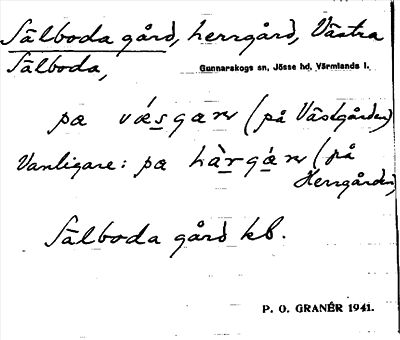 Sälboda gård, herrgård, Västra
Sälboda,
Gunnarskogs sn, Jösse hd, Värmlands l.
pæ vǽsgaṛn (på Västgården)
Vanligare: pæ hàrgáṛn (på
Herrgården)
Sälboda gård kb.
P. O. GRANÉR 1941.